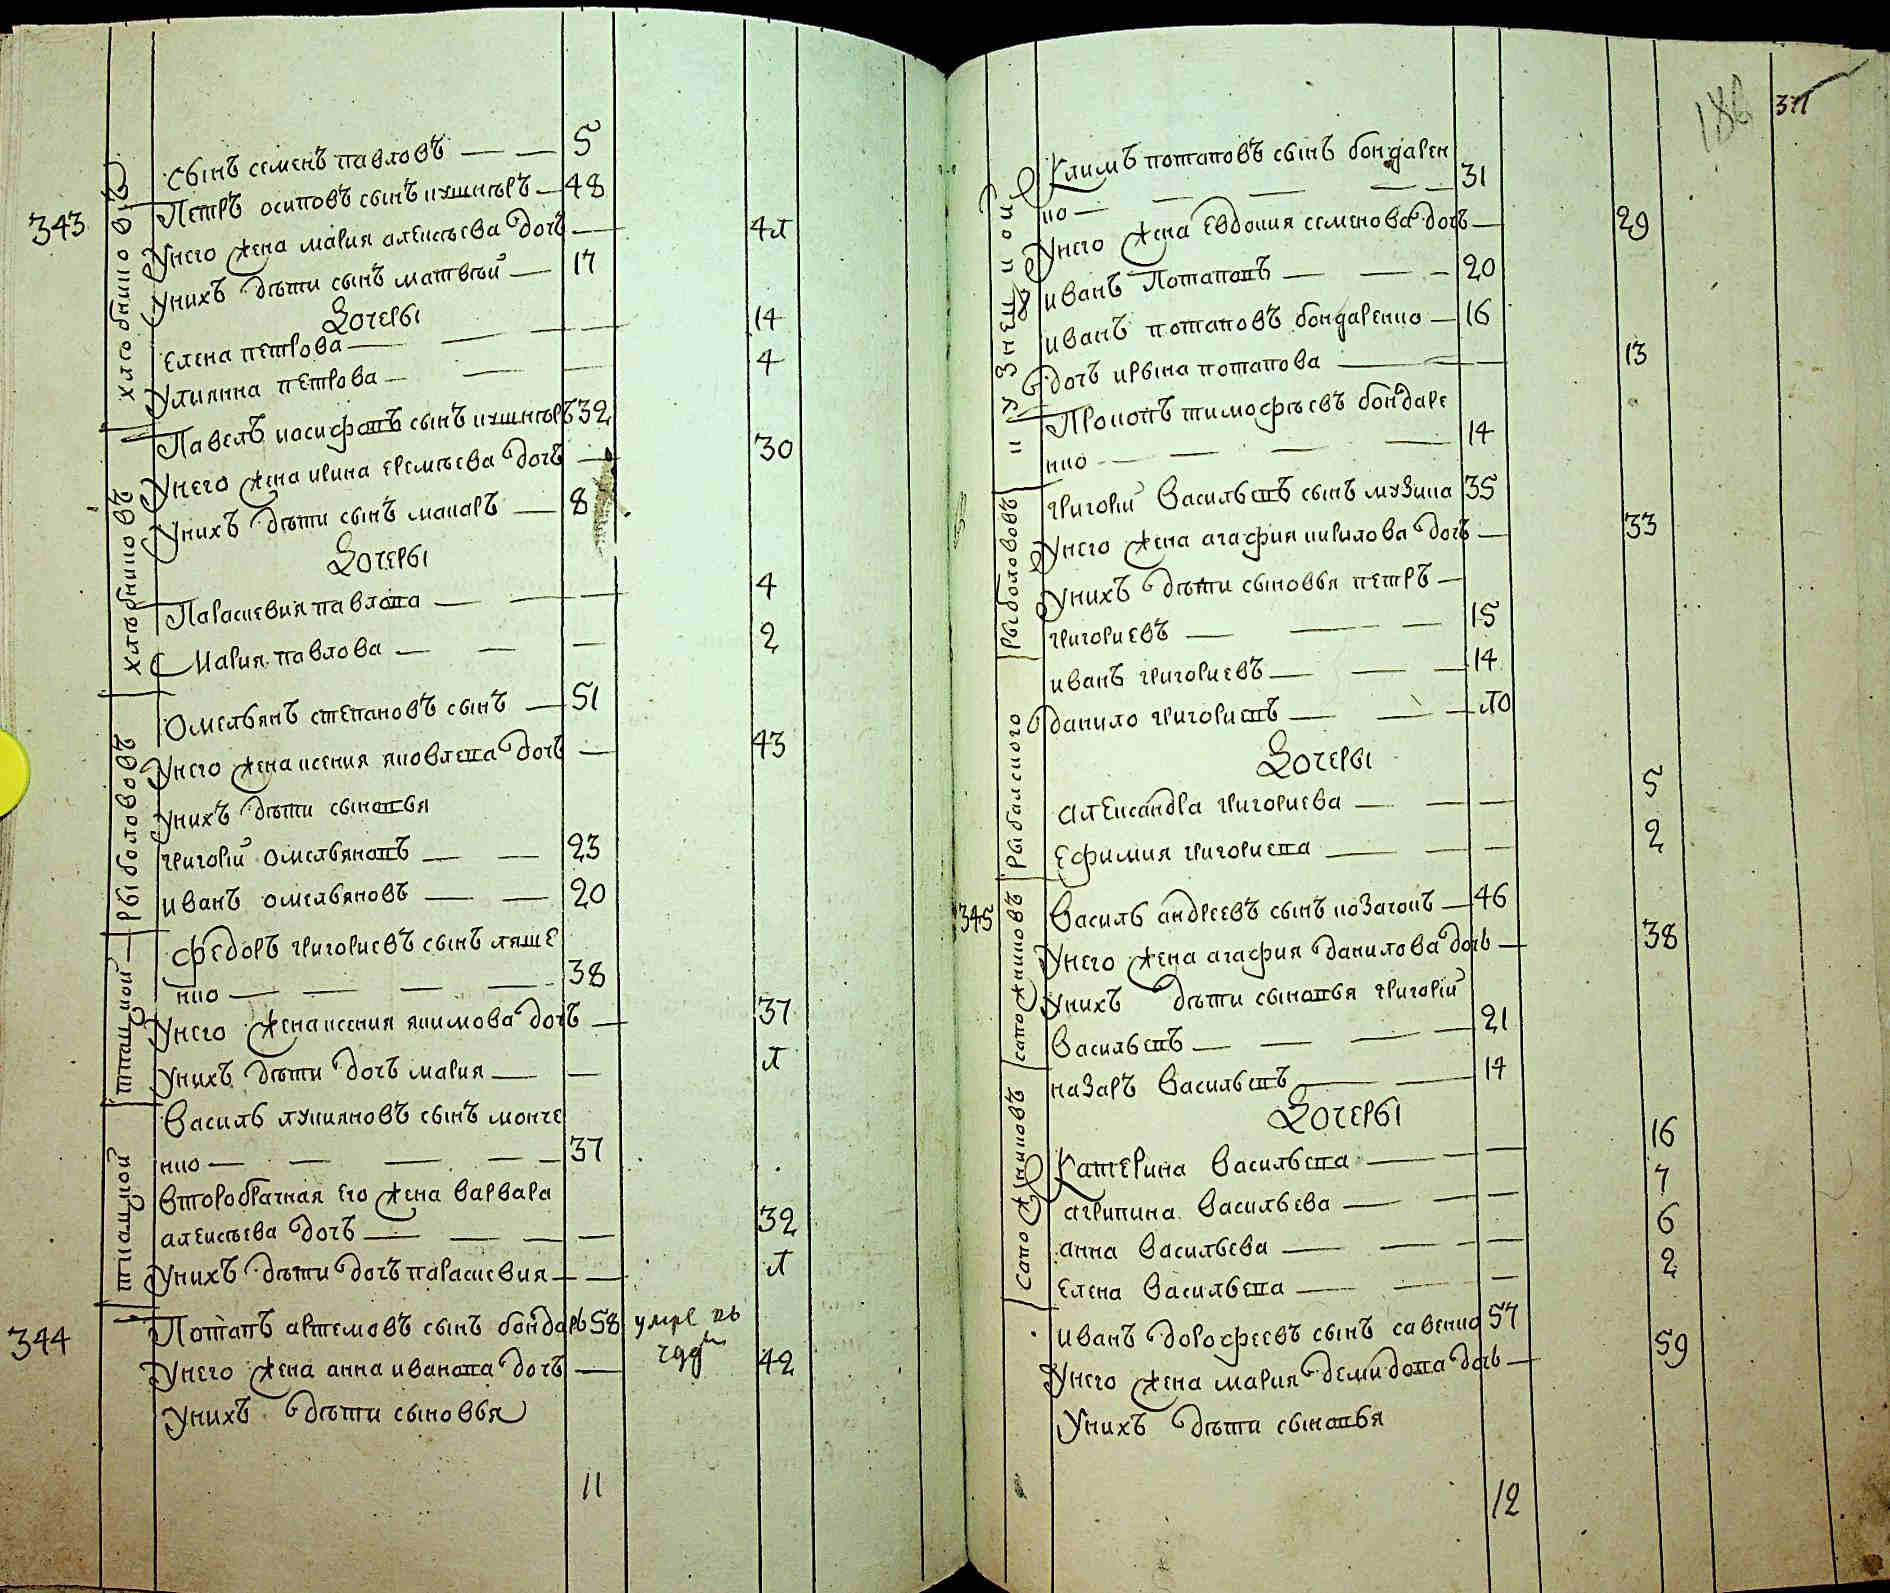 сынъ семенъ павловъ — — 5
343 Петръ осиповъ сынъ кушниръ — 48
Унего жена мария алексѣева дочь — 4л
Унихъ дѣти сынъ матвѣй — 17
Дочеры
елена петрова — — — 14
Улияна петрова — — — 4
Павелъ иосифовъ сынъ кушниръ 32
Унего жена ирина еремѣева дочь — 30
Унихъ дѣти сынъ макаръ — 8
Дочеры
Параскевия павлова — — — 4
Мария павлова — — — 2
Омельянъ степановъ сынъ — 51
Унего жена ксения яковлева дочь — 43
Унихъ дѣти сыновья
григорий омельяновъ — — 23
иванъ омельяновъ — — 20
федоръ григориевъ сынъ ляше
нко — — — — 38
Унего жена ксения якимова дочь — 37
Унихъ дѣти дочь мария — — л
Василь лукияновъ сынъ мокче
нко — — — — 37
второбрачная его жена варвара
алексѣева дочь — — — — 32
Унихъ дѣти дочь параскевия — — л
344 Потапъ артемовъ сынъ бондарь 58 умре
Унего жена анна иванова дочь — 42
Унихъ дѣти сыновья
11
хлѣбниковъ
хлѣбниковъ
рыболововъ
ткацкой
ткацкой
186 371
Климъ потаповъ сынъ бондарен
ко — — — 31
Унего жена Евдокия семенова дочь — 29
иванъ Потаповъ — — — 20
иванъ потаповъ бондаренко — 16
дочь ирына потапова — — 13
Прокопъ тимофѣевъ бондаре
нко — — — 14
григорий Васильевъ сынъ музика 35
Унего жена агафия кирилова дочь — 33
Унихъ дѣти сыновья петръ —
григориевъ — — — 15
иванъ григориевъ — — — 14
данило григориевъ — — — л0
Дочеры
александра григориева — — — 5
ефимия григориева — — — 2
345 Василь андреевъ сынъ козачокъ — 46
Унего жена агафия данилова дочь — 38
Унихъ дѣти сыновья григорий
Васильевъ — — — — 21
назаръ Васильевъ — — 14
Дочеры
Катерина Васильева — — — 16
агрипина Васильева — — — 7
анна Васильева — — — — 6
Елена Васильева — — — 2
иванъ дорофеевъ сынъ савенко 57
Унего жена мария демидова дочь — 59
Унихъ дѣти сыновья
12
кузнецкой
рыболововъ
рыбалского
сапожниковъ
сапожниковъ